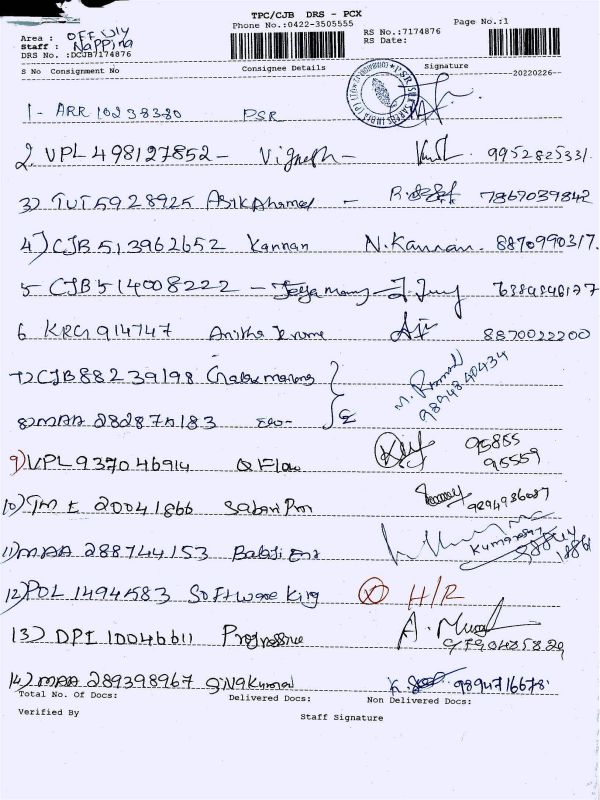 TPC/CJB DRS - PCX
Phone No.:0422-3505555 Page No.:1
Area : OFF Wly
Staff : Nappina
DRS No. :DCJB7174876
RS No.:7174876
RS Date:
S No Consignment No Consignee Details Signature 20220226
1- ARR 10238380 PSR
2. VPL 498127852 - Vignesh - 9952825331
3) TUT 5928925 Asik Ahamed - 7867039842
4) CJB 513962652 Kannan N. Kannan. 8870990317.
5 CJB 514008222 - Jeyamany -
6 KRG 914747 Anitha Jerome 8870022200
7) CJB 88239198 M. Pramod 9894840434
8) MAA 282875183
9) VPL 937046914 Q Flow 95855 95559
10) TME 20041866 Sabari
11) MAA 288744153 Balaji Kumaresan
12) POL 1494583 Software King (X) H/R
13) DPI 10046611 Progressive
14) MAA 289398967 9894716678
Total No. Of Docs: Delivered Docs: Non Delivered Docs:
Verified By Staff Signature